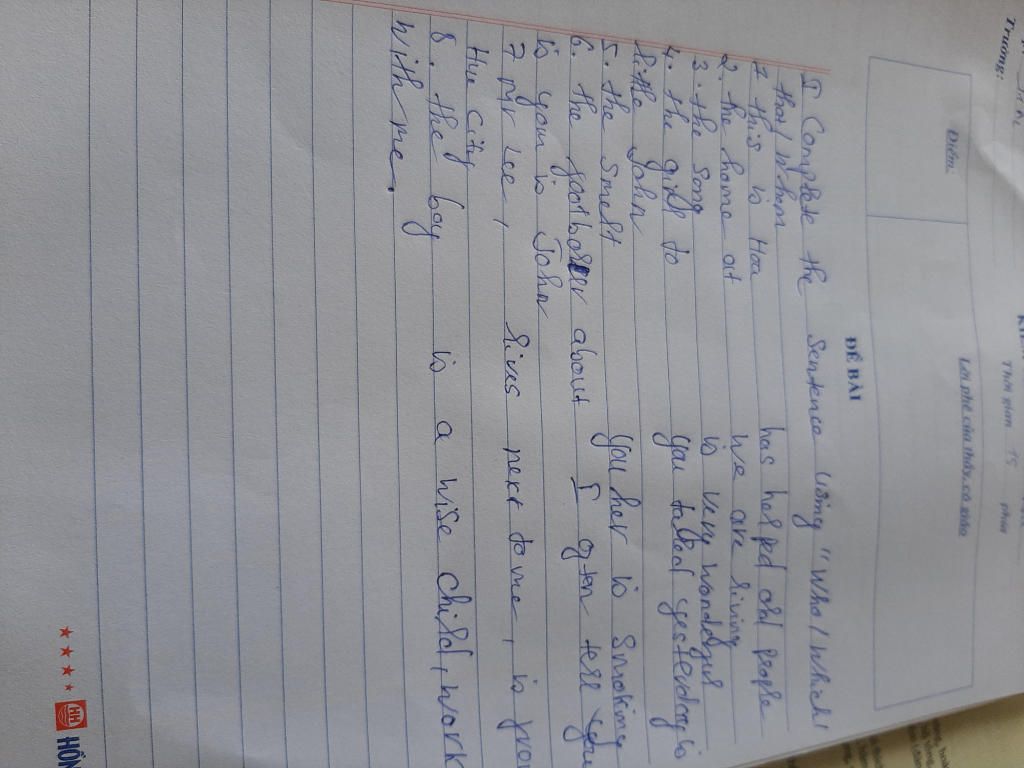 Trường:
Thời gian 15 phút
Điểm:
Lời phê của thầy, cô giáo
ĐỀ BÀI
I Complete the sentence using "Who/which/
that/whom
1 this is Hoa has helped old people
2. the home at we are living
3. the song is very wondefus
4. the gifs to you talked yesterday is
little John
5. the smelt you her is smoking
6. the footballer about I often tell you
is your is John
7 Mr Lee, lives next to me, is from
Hue city
8. the boy is a wise child, work
with me.
HỒN